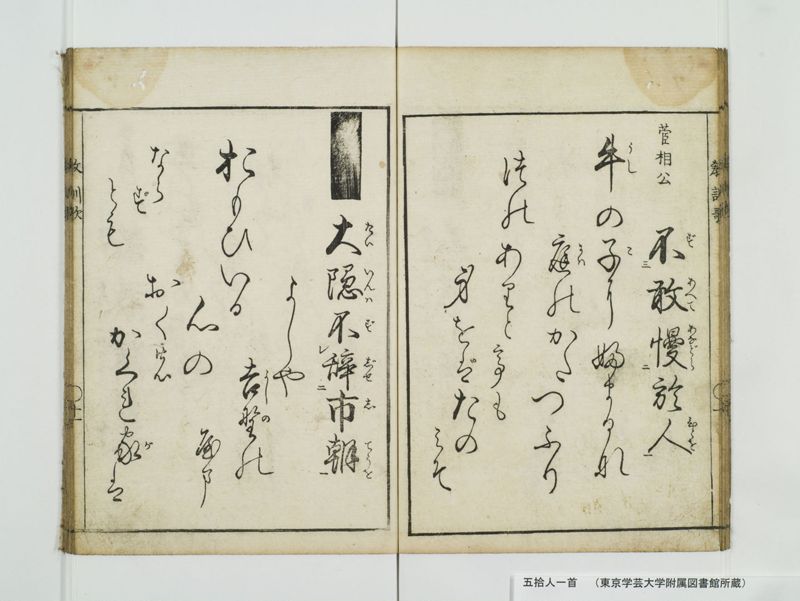 菅相公
不敢慢於人
牛の子に婦まるな
庭のかたつふり
身をなたのみそ
大隠不辞市朝
よしや
吉野の
おもひいる
心の
おくの
かくれ家は
なら
ずとも
教訓歌
五拾人一首　（東京学芸大学附属図書館所蔵）